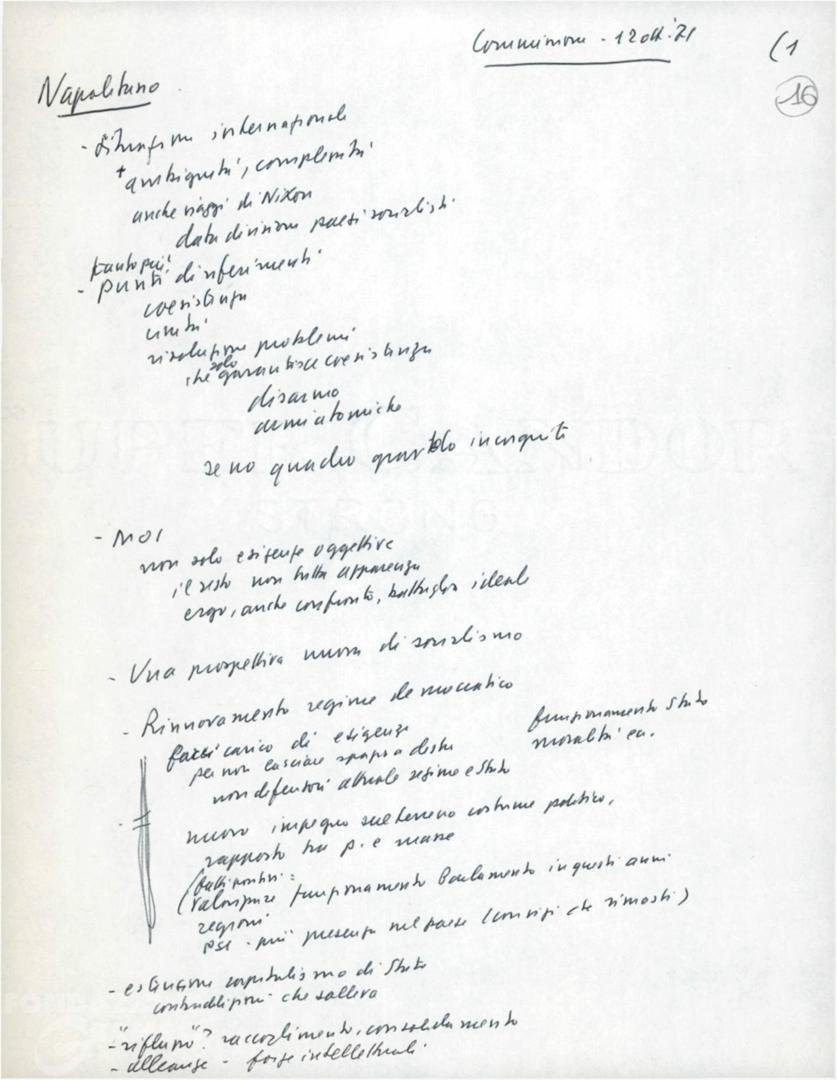 Commissione - 12 ott. '71
(1
16
Napolitano
- situazione internazionale
+ ambiguità, complessità
anche viaggi di Nixon
data divisione paesi socialisti
tanto più
- punti di riferimenti
coesistenza
unità
risoluzione problemi
che solo garantisce coesistenza
disarmo
armi atomiche
se no quadro
- Noi
non solo esigenze oggettive
il resto non tutta apparenza
ergo, anche confronto, battaglia ideale
- Una prospettiva nuova di socialismo
- Rinnovamento regime democratico
farsi carico di esigenze
funzionamento Stato
moralità ecc.
per non lasciare spazio a destra
non difensori attuale regime e Stato
nuovo impegno sul terreno costume politico,
rapporto tra p. e masse
(fatti positivi:
valorizzare funzionamento Parlamento in questi anni
regioni
psi - più presenza nel paese (con vizi che rimasti)
- estensione capitalismo di Stato
contraddizioni che solleva
- "riflusso"? raccoglimento, consolidamento
- alleanze - forze intellettuali